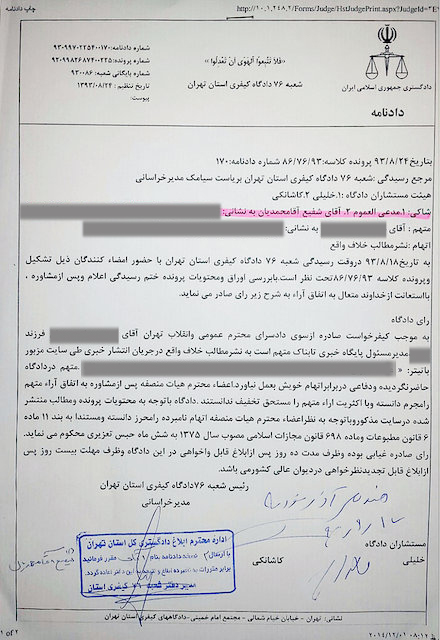 چاپ دادنامه
http://10.1.248.2/Forms/Judge/HstJudgePrint.aspx?JudgeId="E
شماره دادنامه: ۹۳۰۹۹۷۰۲۲۵۴۰۰۱۷۰
شماره پرونده: ۹۲۰۹۹۸۲۶۸۷۴۰۰۲۳۵
شماره بایگانی شعبه: ۹۳۰۰۸۶
تاریخ تنظیم : ۱۳۹۳/۰۸/۲۴
پیوست:
«فَلا تَتَّبِعوُا اَلهَویَ اَنْ تَعْدِلُوا»
شعبه ۷۶ دادگاه کیفری استان تهران
دادگستری جمهوری اسلامی ایران
دادنامه
بتاریخ ۹۳/۸/۲۴ پرونده کلاسه:۸۶/۷۶/۹۳ شماره دادنامه:۱۷۰
مرجع رسیدگی :شعبه ۷۶ دادگاه کیفری استان تهران بریاست سیامک مدیرخراسانی
هیئت مستشاران دادگاه :۱.خلیلی ۲.کاشانکی
شاکی:۱.مدعی العموم ۲. آقای شفیع آقامحمدیان به نشانی:
متهم : آقای به نشانی:
اتهام :نشرمطالب خلاف واقع
به تاریخ ۹۳/۸/۱۸ دروقت رسیدگی شعبه ۷۶ دادگاه کیفری استان تهران با حضور امضاء کنندگان ذیل تشکیل
وپرونده کلاسه ۸۶/۷۶/۹۳تحت نظر است.بابررسی اوراق ومحتویات پرونده ختم رسیدگی اعلام وپس ازمشاوره ،
بااستعانت ازخداوند متعال به اتفاق آراء به شرح زیر رای صادر می نماید.
رای دادگاه
به موجب کیفرخواست صادره ازسوی دادسرای محترم عمومی وانقلاب تهران آقای فرزند
مدیرمسئول پایگاه خبری تابناک متهم است به نشرمطالب خلاف واقع درجریان انتشار خبری طی سایت مزبور
باتیتر: « .متهم دردادگاه
حاضرنگردیده ودفاعی دربرابراتهام خویش بعمل نیاورد.اعضاء محترم هیات منصفه پس ازمشاوره به اتفاق آراء متهم
رامجرم دانسته وبا اکثریت آراء متهم را مستحق تخفیف ندانستند .دادگاه باتوجه به محتویات پرونده ومطالب منتشر
شده درسایت مذکوروباتوجه به نظراعضاء محترم هیات منصفه اتهام نامبرده رامحرز دانسته ومستندا به بند ۱۱ ماده
۶ قانون مطبوعات وماده ۶۹۸ قانون مجازات اسلامی مصوب سال ۱۳۷۵ به شش ماه حبس تعزیری محکوم می نماید.
رای صادره غیابی بوده وظرف مدت ده روز پس ازابلاغ قابل واخواهی در این دادگاه وظرف مهلت بیست روز پس
ازابلاغ قابل تجدیدنظرخواهی دردیوان عالی کشورمی باشد.
رئیس شعبه ۷۶دادگاه کیفری استان تهران
مدیرخراسانی
مستشاران دادگاه
خلیلی
کاشانکی
اداره محترم ابلاغ دادگستری کل استان تهران
مدیر دفتر شعبه ۷۶ کیفری استان
نشانی: تهران - خیابان خیام شمالی - مجتمع امام خمینی-دادگاههای کیفری استان تهران
1 of 2